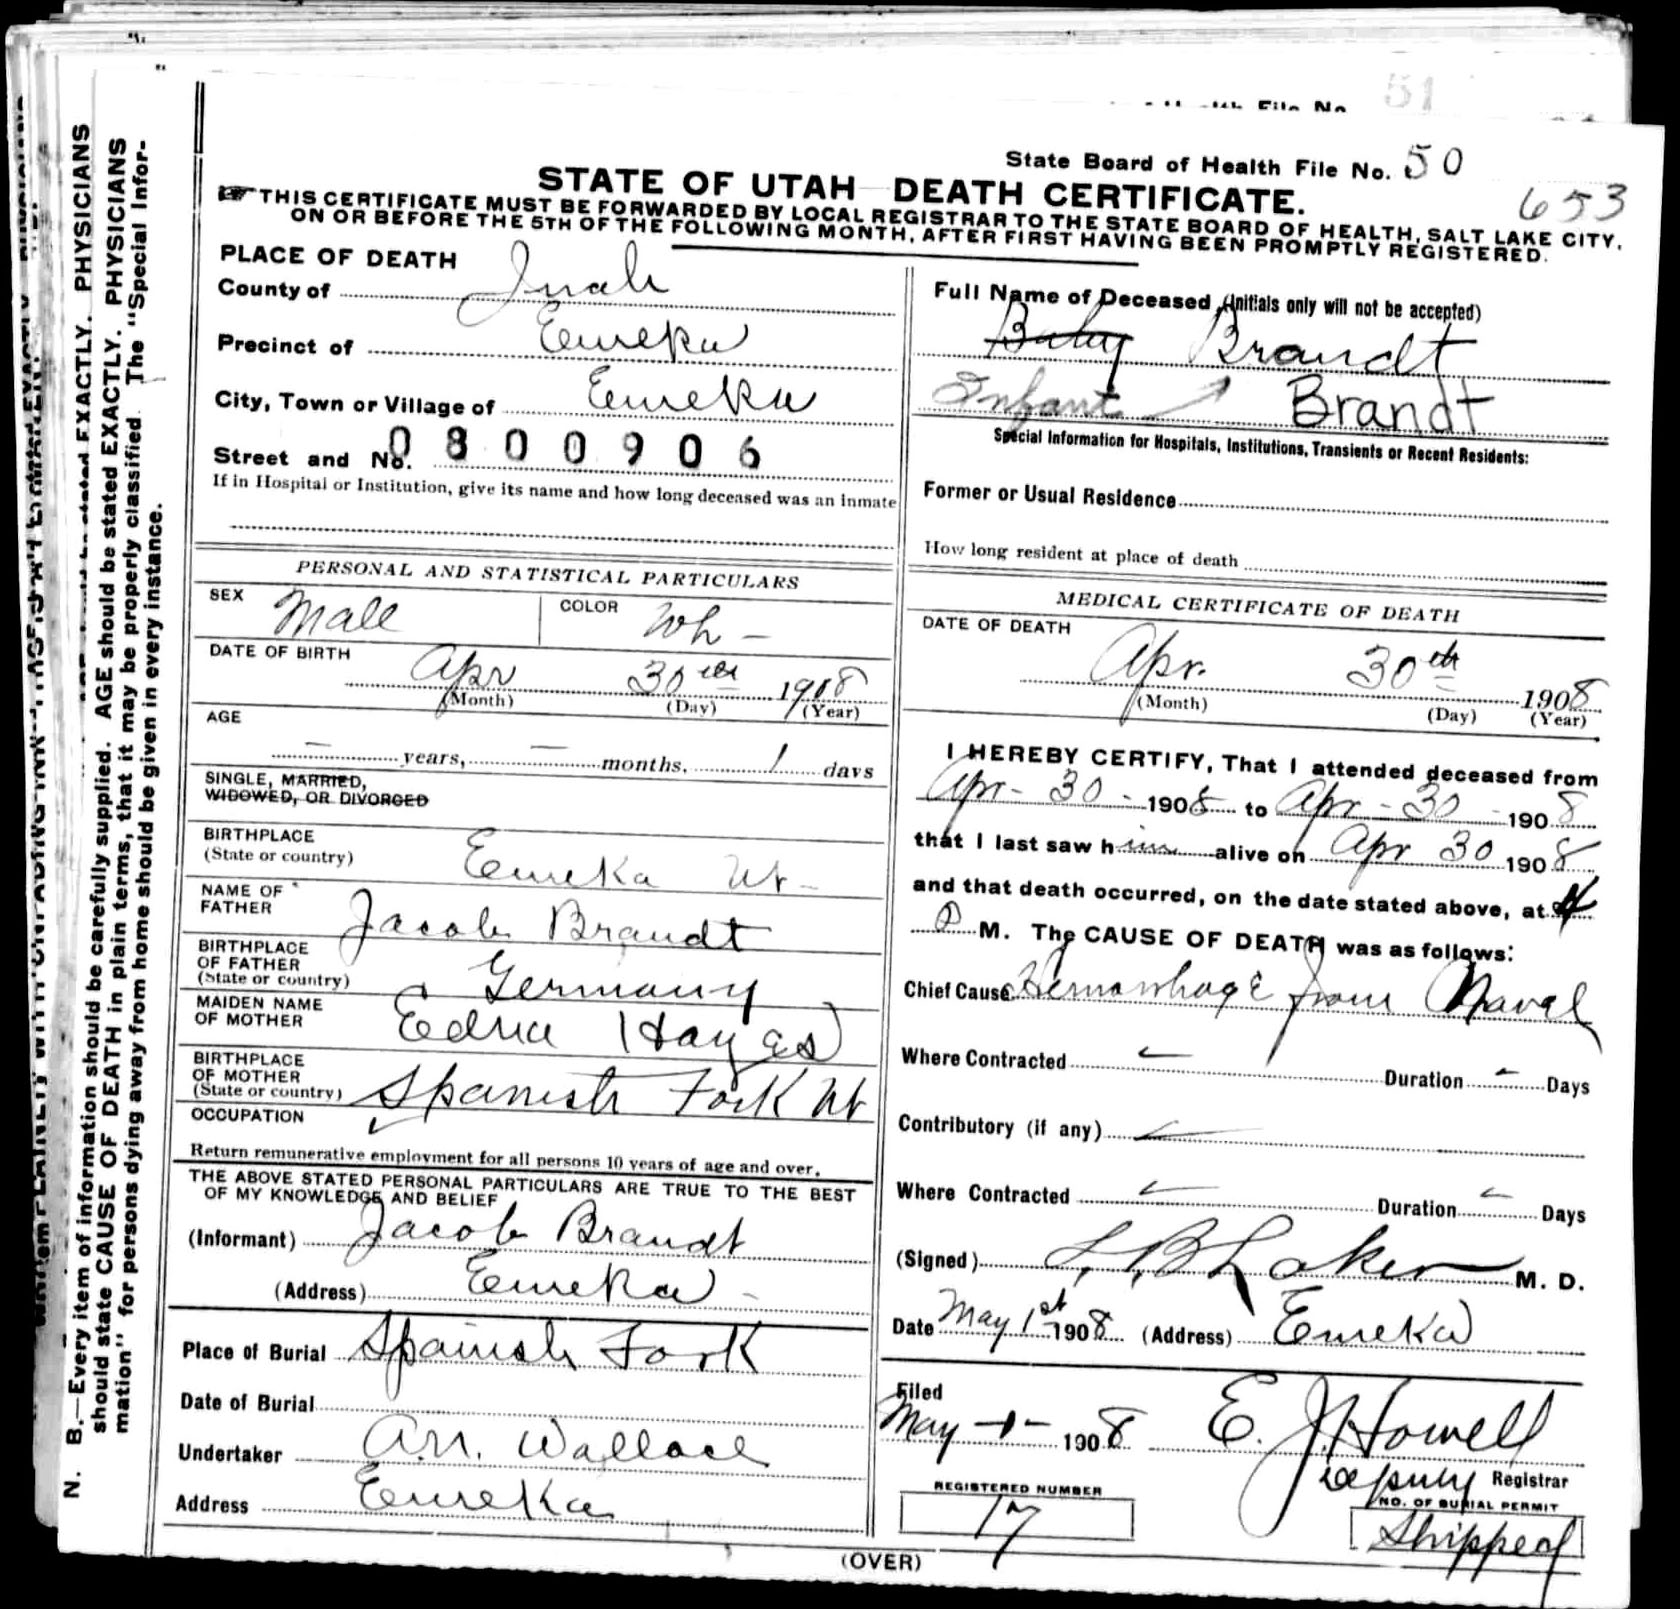 51
State Board of Health File No. 50
653
STATE OF UTAH DEATH CERTIFICATE.
THIS CERTIFICATE MUST BE FORWARDED BY LOCAL REGISTRAR TO THE STATE BOARD OF HEALTH, SALT LAKE CITY,
ON OR BEFORE THE 5TH OF THE FOLLOWING MONTH, AFTER FIRST HAVING BEEN PROMPTLY REGISTERED.
PLACE OF DEATH
County of Juab
Precinct of Eureka
City, Town or Village of Eureka
Street and No. 0800906
If in Hospital or Institution, give its name and how long deceased was an inmate
Full Name of Deceased (Initials only will not be accepted)
Baby Brandt
Infant Brandt
Special Information for Hospitals, Institutions, Transients or Recent Residents:
Former or Usual Residence
How long resident at place of death
PERSONAL AND STATISTICAL PARTICULARS
SEX Male COLOR Wh -
DATE OF BIRTH Apr 30th 1908
(Month) (Day) (Year)
AGE
— years, — months, 1 days
SINGLE, MARRIED,
WIDOWED, OR DIVORCED
BIRTHPLACE
(State or country) Eureka Ut-
NAME OF
FATHER Jacob Brandt
BIRTHPLACE
OF FATHER
(State or country) Germany
MAIDEN NAME
OF MOTHER Edna Hayes
BIRTHPLACE
OF MOTHER
(State or country) Spanish Fork Ut
OCCUPATION
Return remunerative employment for all persons 10 years of age and over.
THE ABOVE STATED PERSONAL PARTICULARS ARE TRUE TO THE BEST
OF MY KNOWLEDGE AND BELIEF
(Informant) Jacob Brandt
(Address) Eureka -
Place of Burial Spanish Fork
Date of Burial
Undertaker A.N. Wallace
Address Eureka
MEDICAL CERTIFICATE OF DEATH
DATE OF DEATH
Apr. 30th 1908
(Month) (Day) (Year)
I HEREBY CERTIFY, That I attended deceased from
Apr - 30 - 1908 to Apr - 30 - 1908
that I last saw him alive on Apr 30 1908
and that death occurred, on the date stated above, at 4
P M. The CAUSE OF DEATH was as follows:
Chief Cause Hemorrhage from Naval
Where Contracted Duration Days
Contributory (if any)
Where Contracted Duration Days
(Signed) L. B. Laker M. D.
Date May 1st 1908 (Address) Eureka
Filed
May -1- 1908 E. J. Howell
Deputy Registrar
REGISTERED NUMBER
17
NO. OF BURIAL PERMIT
Shipped
(OVER)
N. B.—Every item of information should be carefully supplied. AGE should be stated EXACTLY. PHYSICIANS
should state CAUSE OF DEATH in plain terms, that it may be properly classified. The "Special Infor-
mation" for persons dying away from home should be given in every instance.